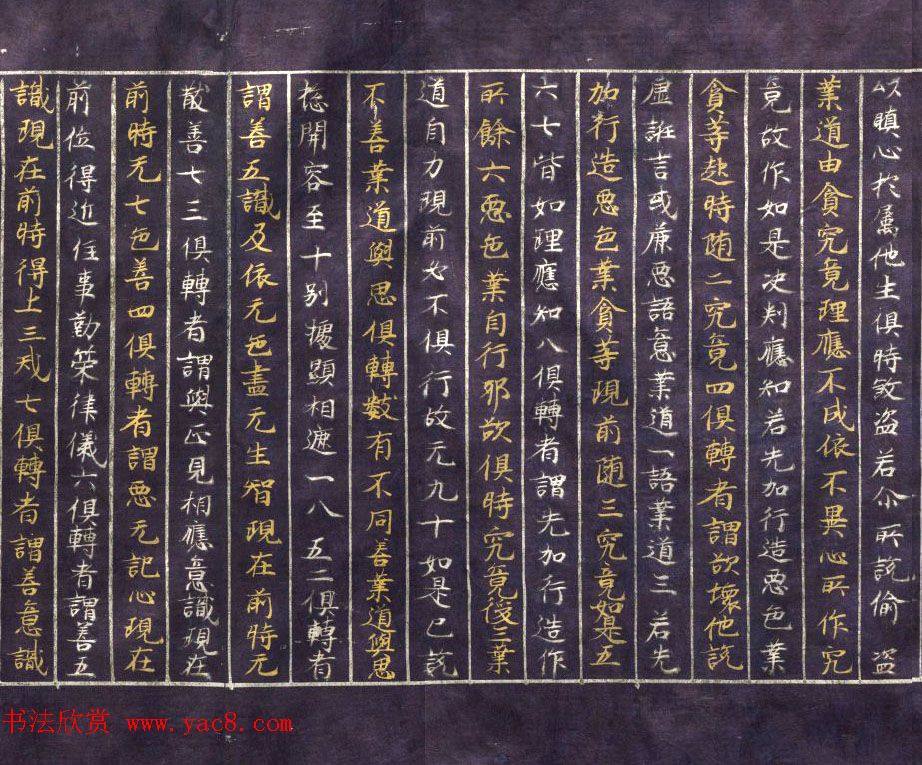 以瞋心於屬他生俱時煞盜若尒所說偷盜
業道由貪究竟理應不成依不異心所作究
竟故作如是决判應知若先加行造惡色業
貪等起時随二究竟四俱轉者謂欲壞他說
虛誑言或麁惡語意業道一語業道三若先
加行造惡色業貪等現前随三究竟如是五
六七皆如理應知八俱轉者謂先加行造作
所餘六惡色業自行邪欲俱時究竟後三業
道自力現前必不俱行故无九十如是已說
不善業道與思俱轉數有不同善業道與思
惣開容至十別據顯相遮一八五二俱轉者
謂善五識及依无色盡无生智現在前時无
散善七三俱轉者謂與正見相應意識現在
前時无七色善四俱轉者謂惡无記心現在
前位得近住事勤策律儀六俱轉者謂善五
識現在前時得上三戒七俱轉者謂善意識
书法欣赏 www.yac8.com